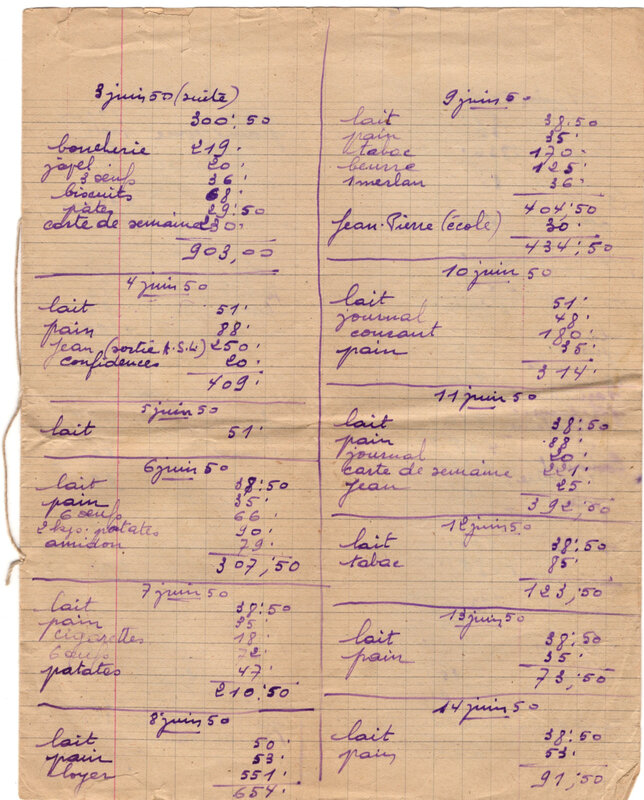 3 juin 50 (suite)
300.50
boucherie 219.
javel 20.
3 oeufs 36.
biscuits 68.
pâtes 29.50
carte de semaine 230.
903,00
4 juin 50
lait 51.
pain 88.
Jean (sortie A.S.L) 250.
confidences 20.
409.
5 juin 50
lait 51.
6 juin 50
lait 38.50
pain 35.
6 oeufs 66.
2 kgs. patates 90.
amidon 79.
307,50
7 juin 50
lait 38.50
pain 35.
cigarettes 18.
6 oeufs 72.
patates 47.
210.50
8 juin 50
lait 50.
pain 53.
loyer 551.
654.
9 juin 50
lait 38.50
pain 35.
tabac 170.
beurre 125.
1 merlan 36.
404.50
Jean-Pierre (école) 30.
434,50
10 juin 50
lait 51.
journal 48.
courant 180.
pain 35.
314.
11 juin 50
lait 38.50
pain 88.
journal 20.
carte de semaine 221.
Jean 25.
392,50
12 juin 50
lait 38.50
tabac 85.
123,50
13 juin 50
lait 38.50
pain 35.
73,50
14 juin 50
lait 38.50
pain 53.
91,50